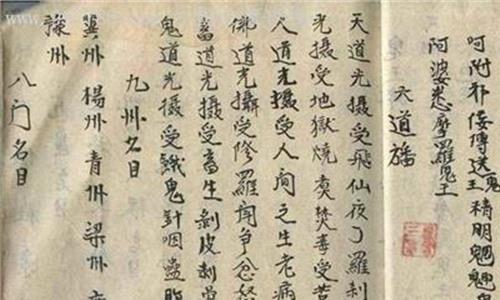 呵附邪倭傳送鬼王精明魍魎
阿婆悉摩羅鬼王
六道旛
天道光攝受飛仙夜了羅刹
光攝受地獄燒煑焚毒受苦
人道光攝受人间之生老病
佛道光攝受修羅闻争忿怒
畜道光攝受畜生剝皮刺
鬼道光攝受餓鬼針咽
九州名目
冀州 楊州 青州 梁州
豫州
八门名目